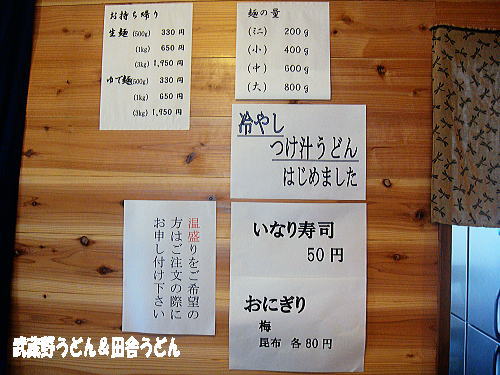 お持ち帰り
生麺(500g) 330円
(1kg) 650円
(3kg) 1,950円
ゆで麺(500g) 330円
(1kg) 650円
(3kg) 1,950円
麺の量
(ミニ) 200g
(小) 400g
(中) 600g
(大) 800g
冷やし
つけ汁うどん
はじめました
温盛りをご希望の
方はご注文の際に
お申し付け下さい
いなり寿司
50円
おにぎり
梅
昆布 各80円
武蔵野うどん&田舎うどん